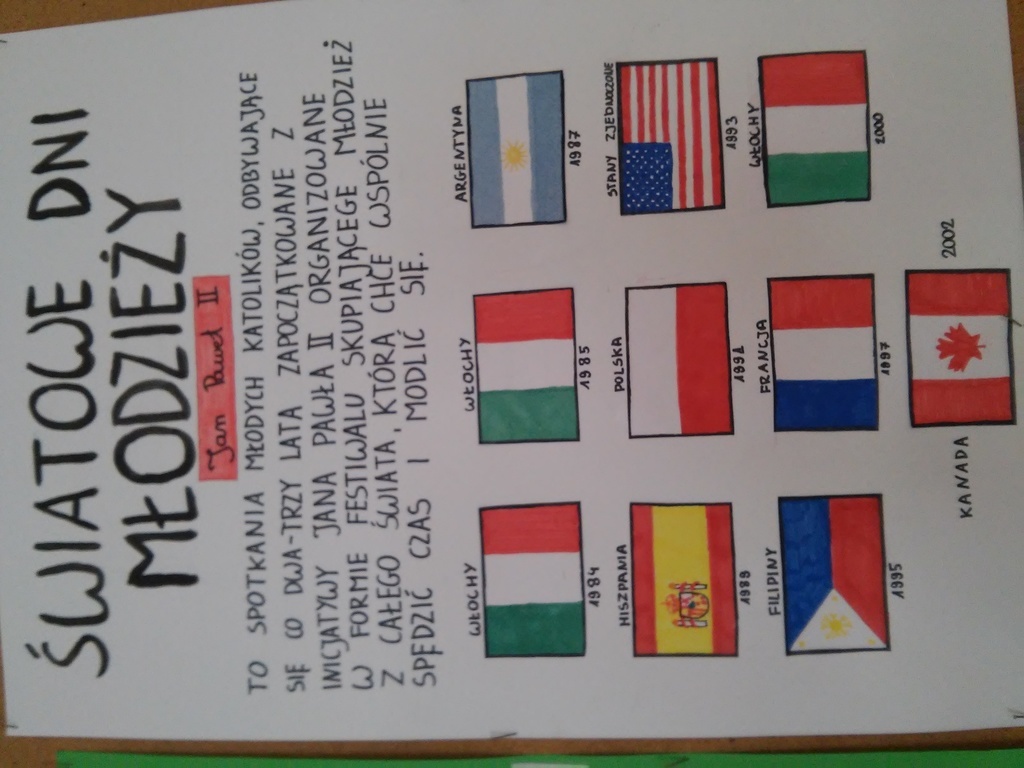 ŚWIATOWE DNI
MŁODZIEŻY
Jan Paweł II
TO SPOTKANIA MŁODYCH KATOLIKÓW, ODBYWAJĄCE
SIĘ CO DWA-TRZY LATA ZAPOCZĄTKOWANE Z
INICJATYWY JANA PAWŁA II ORGANIZOWANE
W FORMIE FESTIWALU SKUPIAJĄCEGE MŁODZIEŻ
Z CAŁEGO ŚWIATA, KTÓRA CHCE WSPÓLNIE
SPĘDZIĆ CZAS I MODLIĆ SIĘ.
WŁOCHY WŁOCHY ARGENTYNA
1984 1985 1987
HISZPANIA POLSKA STANY ZJEDNOCZONE
1989 1991 1993
FILIPINY FRANCJA WŁOCHY
1995 1997 2000
KANADA 2002